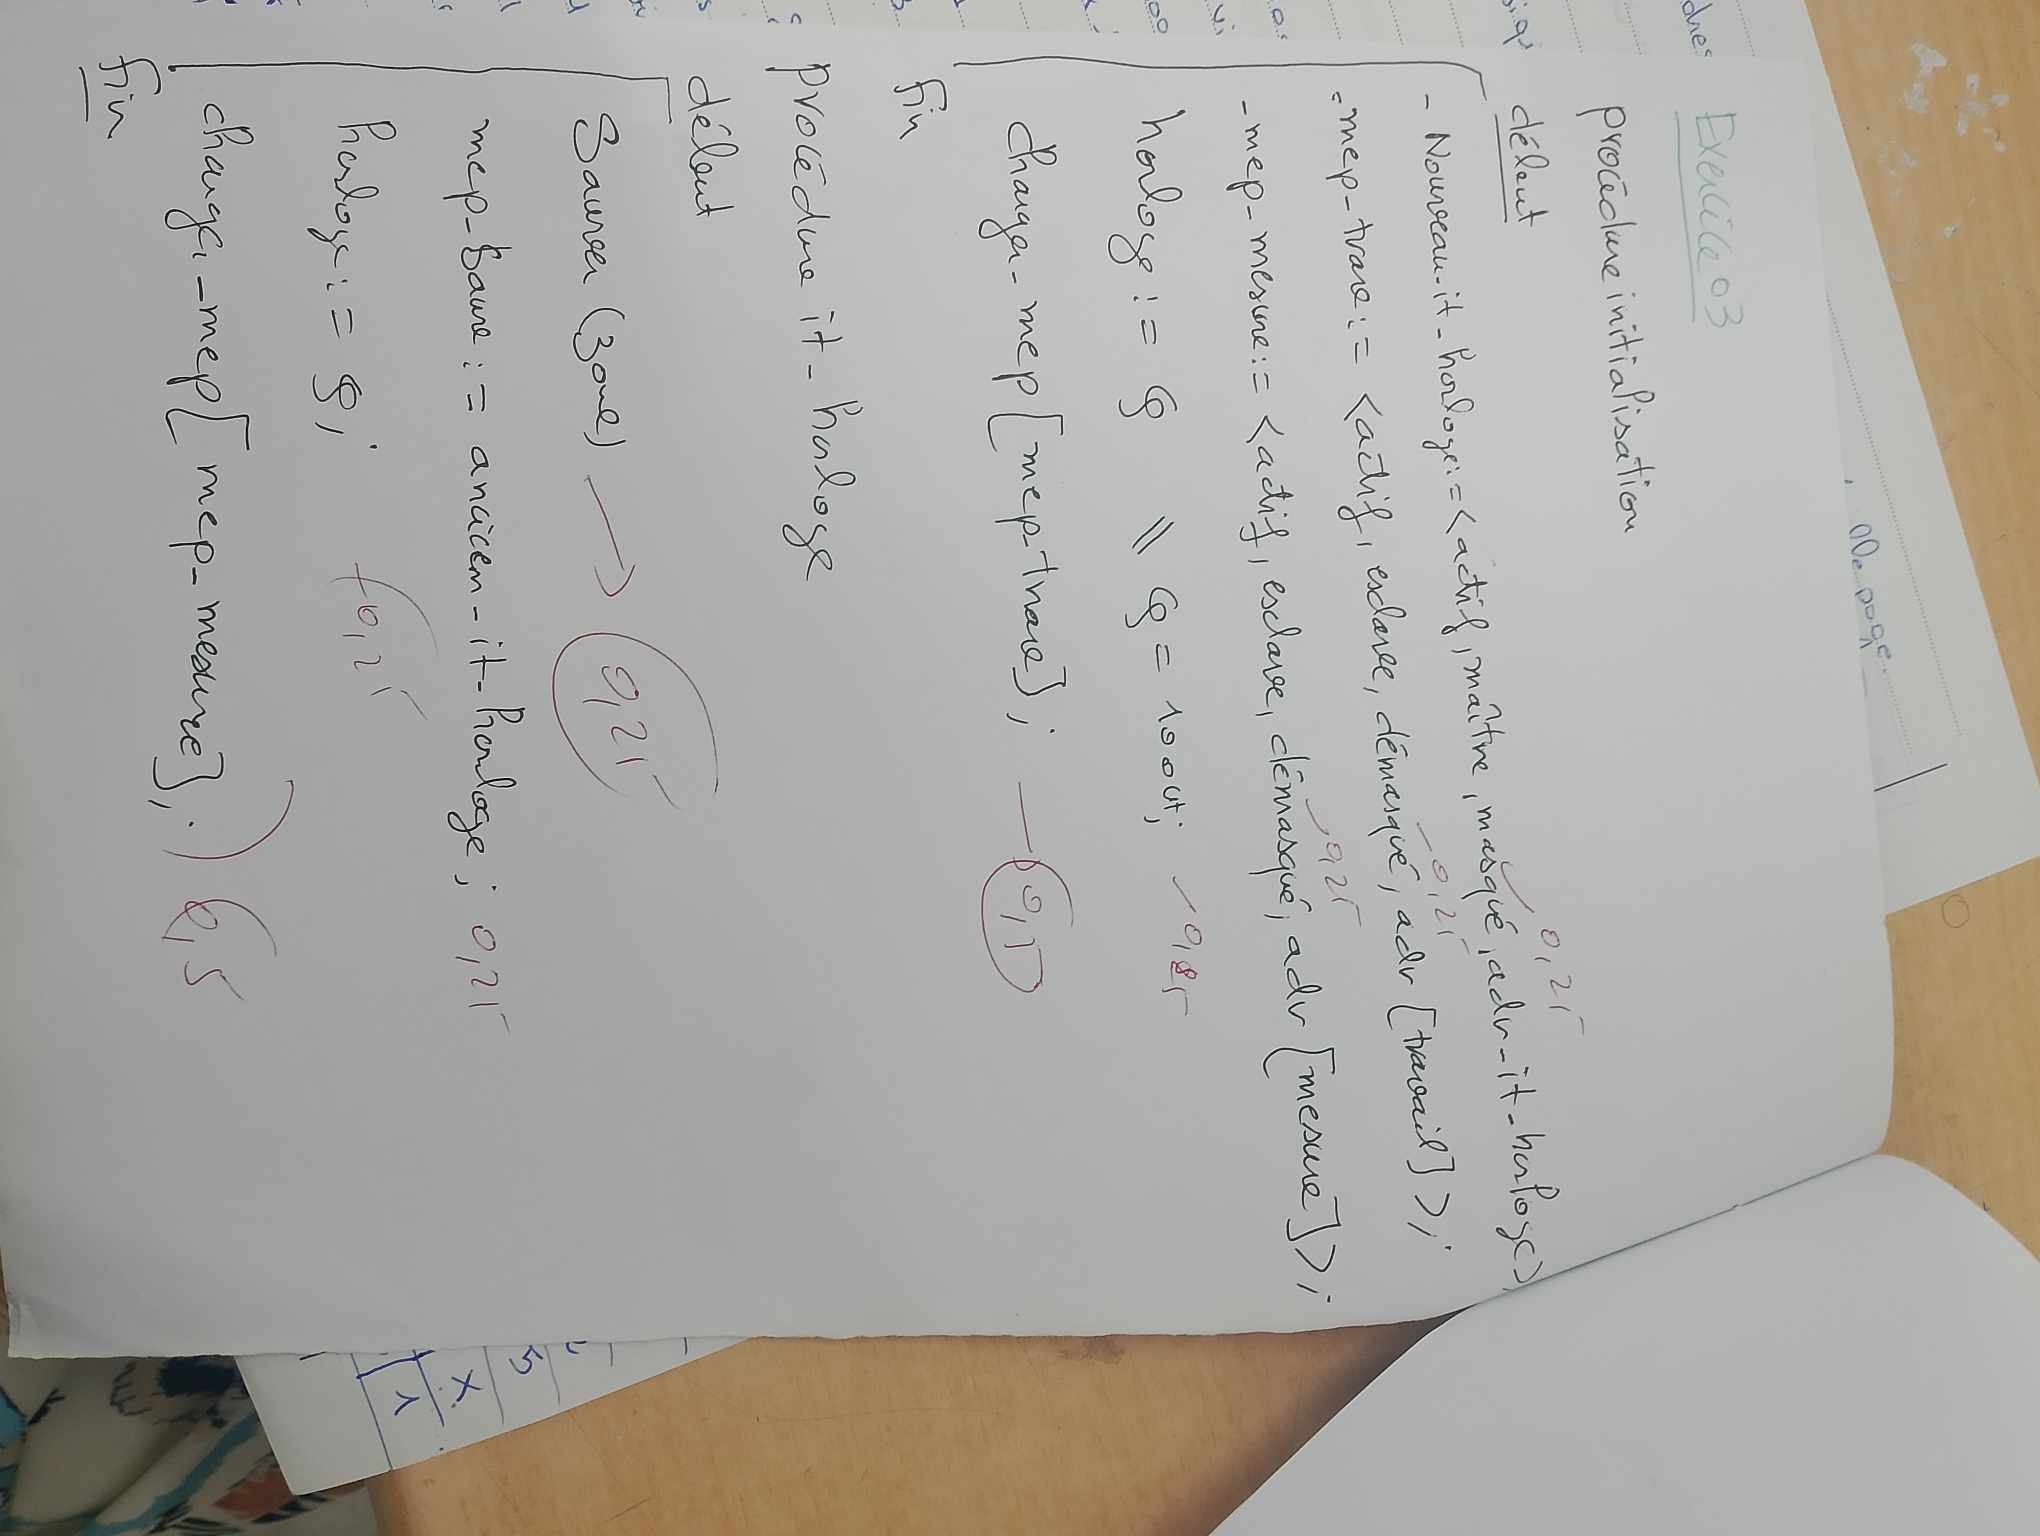 Exercice 03
procédure initialisation
début
- Nouveau-it-horloge:=<actif, maître, masqué, adr-it-horloge>
0,25
- mep-trav:= <actif, esclave, démasqué, adr [travail]>;
0,25
- mep-mesure:= <actif, esclave, démasqué, adr [mesure]>;
0,25
horloge := Q // Q = 100ut;
charger-mep[mep-trav];
fin
procédure it-horloge
début
Sauver (zone) → 0,25
mep-sauve := ancien-it-horloge; 0,25
horloge := Q;
0,25
charger-mep[mep-mesure];
0,5
fin
de page